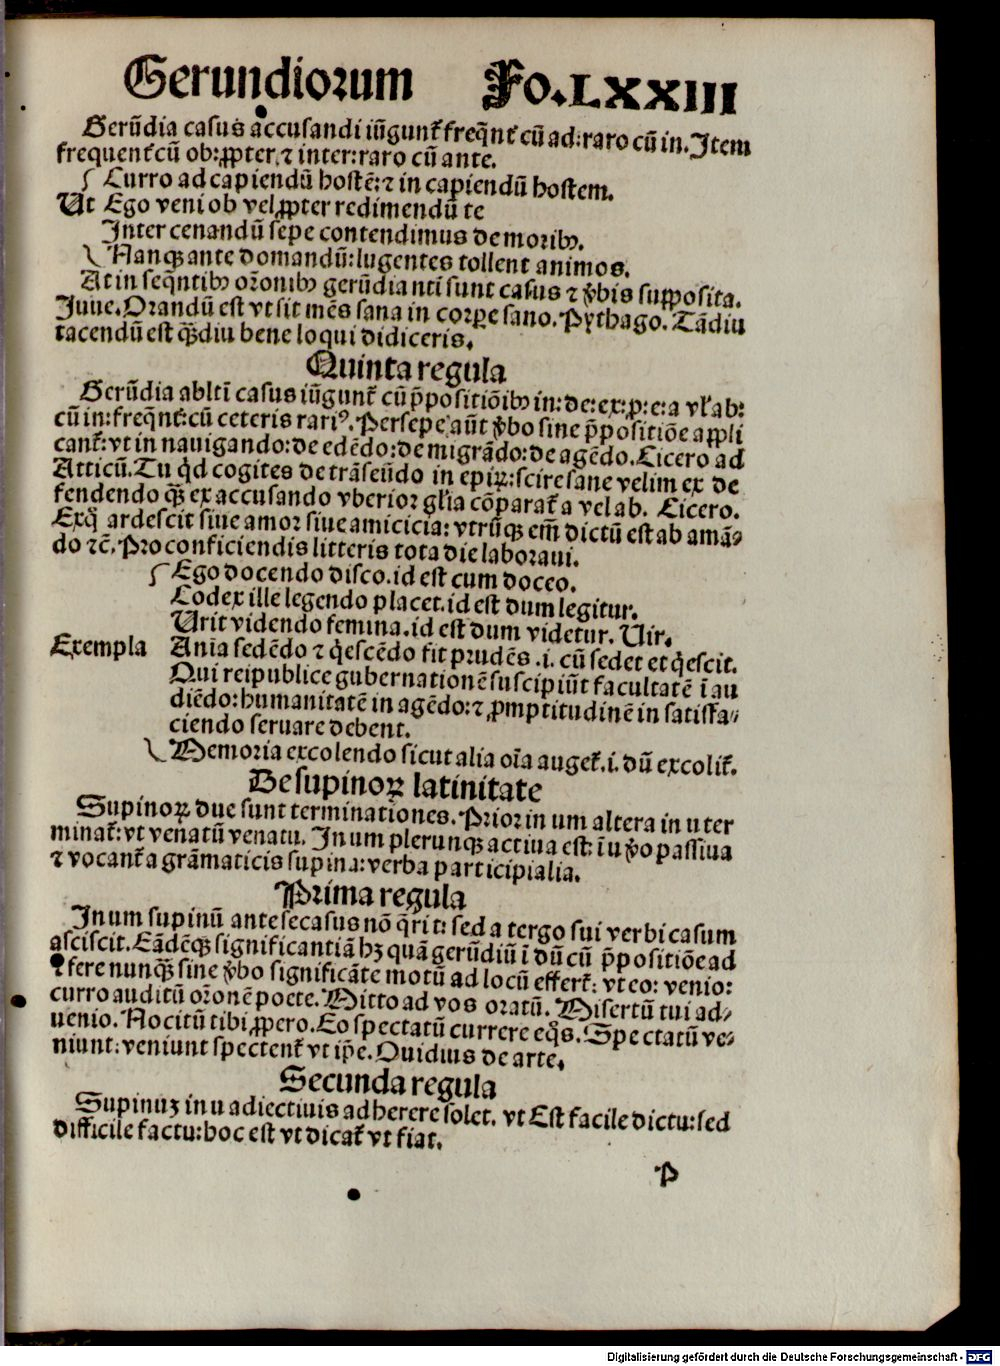 Gerundiorum Fo.LXXIII
Gerūdia casus accusandi iūgunt᷑ freq̄nt᷑ cū ad:raro cū in. Item
frequent᷑ cū ob:ꝓpter,⁊ inter:raro cū ante.
Curro ad capiendū hostē:⁊ in capiendū hostem.
Ut Ego veni ob vel ꝓpter redimendū te
Inter cenandū sepe contendimus de moribꝰ.
Nanqꝫ ante domandū:lugentes tollent animos.
At in seq̄ntibꝰ orōnibꝰ gerūdia nti sunt casus ⁊ v̄bis supposita.
Juue.Orandū est vt sit mēs sana in corpe sano.Pythago. Tādiu
tacendū est qꝫdiu bene loqui didiceris.
Quinta regula
Gerūdia abltī casus iūgunt᷑ cū p̄positiōibꝰ in:de:ex:p:e:a vl᷑ ab:
cū in:freq̄nt᷑:cū ceteris rariꝰ.Persepe aūt v̄bo sine p̄positiōe appli
cant᷑:vt in nauigando:de edēdo:de migrādo:de agēdo.Cicero ad
Atticū.Tu qͥd cogites de trāseūdo in epiꝝ:scire sane velim ex de
fendendo qꝫ ex accusando vberior gl᷑ia cōparat᷑ a vel ab. Cicero.
Exqͦ ardescit siue amor siue amicicia: vtrūqꝫ em̄ dictū est ab amā⸗
do ⁊c̄.Pro conficiendis litteris tota die laboraui.
Ego docendo disco.id est cum doceo.
Codex ille legendo placet.id est dum legitur.
Urit videndo femina.id est dum videtur. Uir.
Exempla Anīa sedēdo ⁊ qͥescēdo fit prudēs .i. cū sedet et qͥescit.
Qui reipublice gubernationē suscipiūt facultatē ī au
diēdo:humanitatē in agēdo:⁊ ꝓmptitudinē in satisfa⸗
ciendo seruare debent.
Memoria excolendo sicut alia oīa auget᷑.i. dū excolit᷑.
De supinoꝝ latinitate
Supinoꝝ due sunt terminationes.Prior in um altera in u ter
minat᷑:vt venatū venatu. In um plerunqꝫ actiua est: ī u v̄o passiua
⁊ vocant᷑ a grāmaticis supina:verba participialia.
Prima regula
In um supinū ante se casus nō q̄rit: sed a tergo sui verbi casum
asciscit.Eādēqꝫ significantiā hꝫ quā gerūdiū ī dū cū p̄positiōe ad
⁊ fere nunqꝫ sine v̄bo significāte motū ad locū effert᷑: vt eo: venio:
curro auditū orōnē poete.Mitto ad vos oratū. Misertū tui ad⸗
uenio. Nocitū tibi ꝓpero.Eo spectatū currere eqͦs.Spectatū ve⸗
niunt:veniunt spectent᷑ vt ip̄e.Ouidius de arte.
Secunda regula
Supinuꝫ in u adiectiuis adherere solet. vt Est facile dictu:sed
difficile factu:hoc est vt dicat᷑ vt fiat.
P
Digitalisierung gefördert durch die Deutsche Forschungsgemeinschaft - DFG